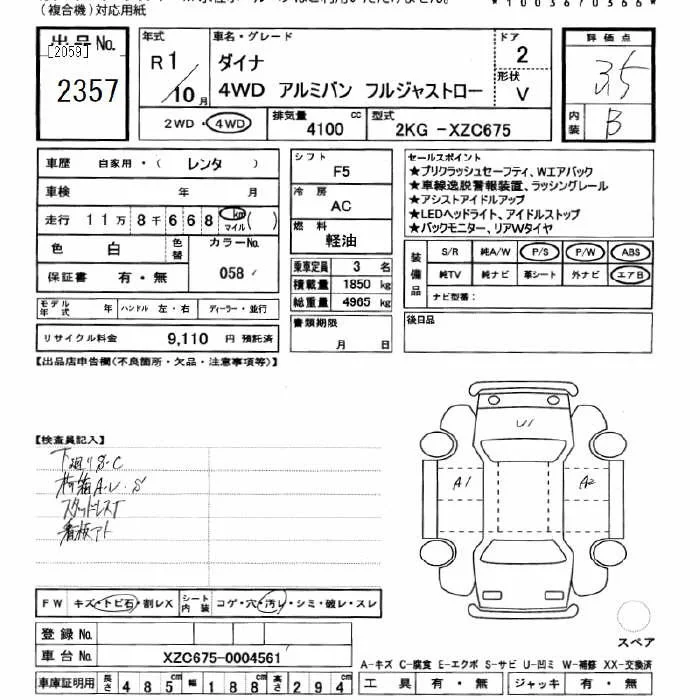 (複合機)対応用紙
*1003670366*
出品No.
[2059]
2357
年式
R1/10月
車名・グレード
ダイナ
4WD アルミバン フルジャストロー
ドア
2
形状
V
評価点
3.5
内装
B
2WD・4WD
排気量
4100 cc
型式
2KG -XZC675
車歴 自家用・( レンタ )
車検 年 月
走行 11万8千668 km マイル ( )
色 白 色替
カラーNo.
058
保証書 有・無
モデル年式 年 ハンドル 左・右 ディーラー・並行
リサイクル料金 9,110 円 預託済
シフト
F5
冷房
AC
燃料
軽油
乗車定員 3 名
積載量 1850 kg
総重量 4965 kg
書類期限
月 日
セールスポイント
★プリクラッシュセーフティ、Wエアバック
★車線逸脱警報装置、ラッシングレール
★アシストアイドルアップ
★LEDヘッドライト、アイドルストップ
★バックモニター、リアWタイヤ
装備品
S/R 純A/W P/S P/W ABS
純TV 純ナビ 革シート 外ナビ エアB
ナビ型番:
後日品
【出品店申告欄(不良箇所・欠品・注意事項等)】
【検査員記入】
下廻りS・C
荷箱A・U・S
スタッドレスT
看板アト
U1
A1
A2
FW キズ・トビ石・割レX シート内装 コゲ・穴・汚レ・シミ・破レ・スレ
登録No.
車台No. XZC675-0004561
車庫証明用 長さ 485cm 幅 188cm 高さ 294cm
スペア
A-キズ C-腐食 E-エクボ S-サビ U-凹ミ W-補修 XX-交換済
工具 有・無 ジャッキ 有・無